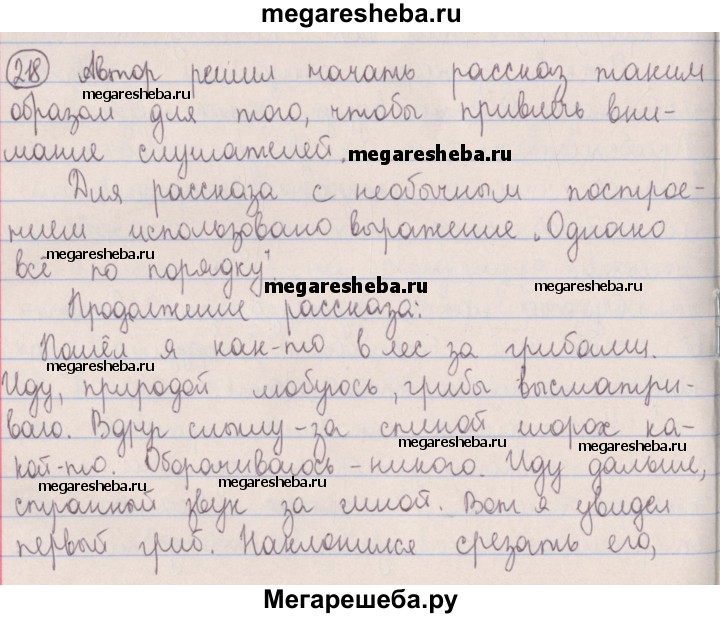 megaresheba.ru
218 Автор решил начать рассказ таким
megaresheba.ru
megaresheba.ru
образом для того, чтобы привлечь вни-
мание слушателей.
megaresheba.ru
Для рассказа с необычным построе-
нием использовано выражение „Однако
megaresheba.ru
всё по порядку".
megaresheba.ru
megaresheba.ru
Продолжение рассказа:
Пошёл я как-то в лес за грибами.
Иду, природой любуюсь, грибы высматри-
ваю. Вдруг слышу - за спиной шорох ка-
megaresheba.ru
megaresheba.ru
кой-то. Оборачиваюсь - никого. Иду дальше,
megaresheba.ru
megaresheba.ru
странный звук за мной. Вот я увидел
первый гриб. Наклонился срезать его,
Мегарешеба.ру